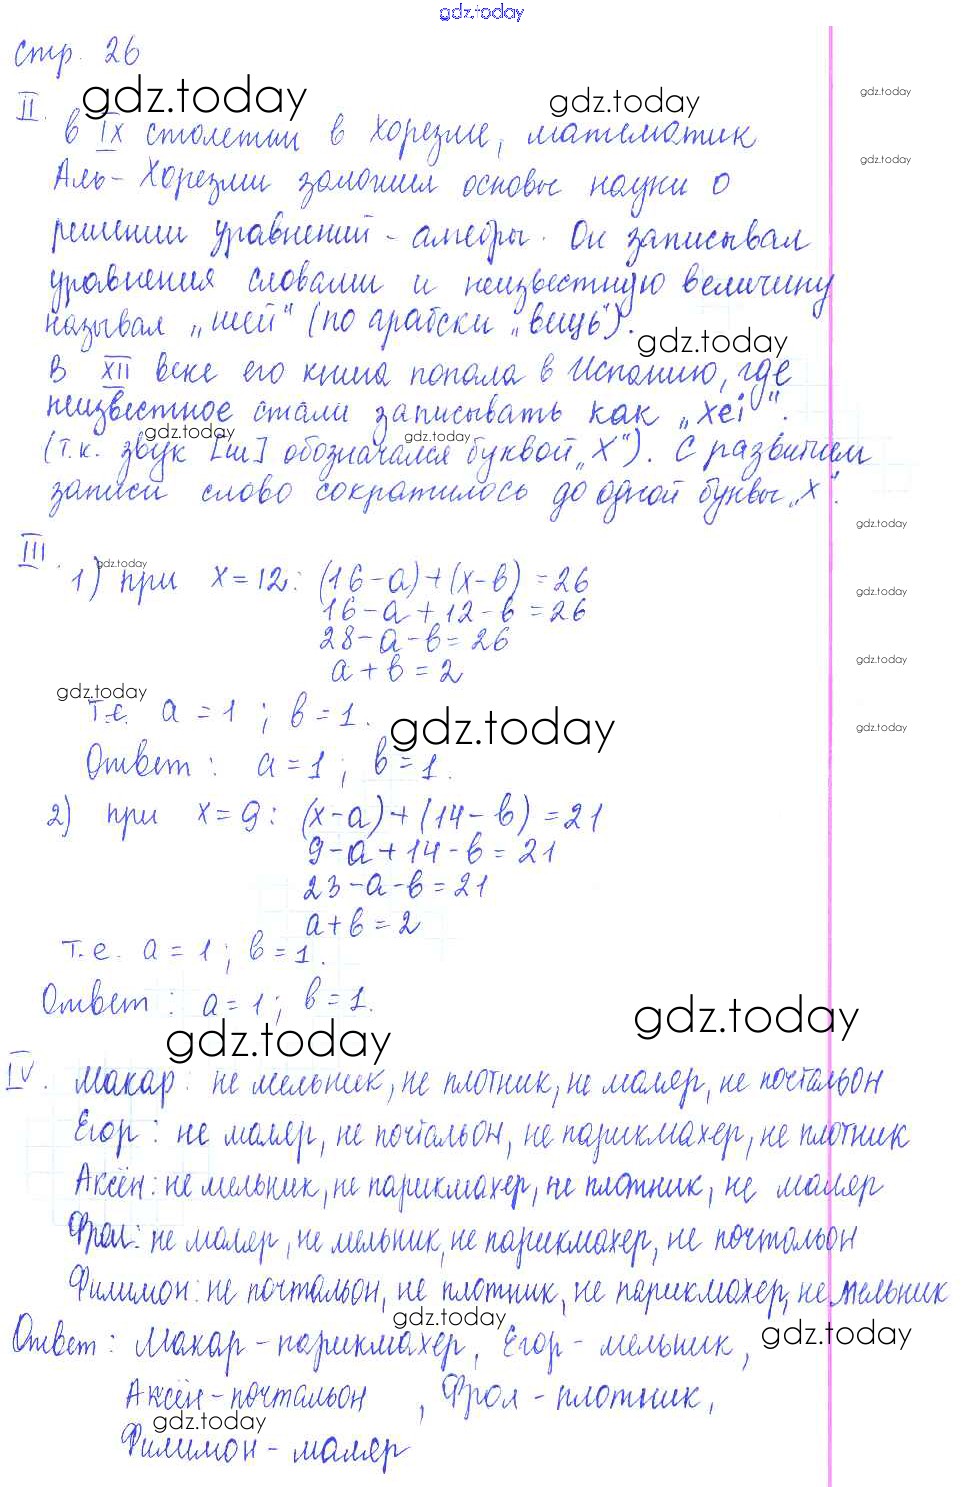 gdz.today
стр. 26
gdz.today gdz.today gdz.today
II. в IX столетии в Хорезме, математик
gdz.today
Аль-Хорезми заложил основы науки о
решении уравнений - алгебры. Он записывал
уравнения словами и неизвестную величину
называл „шей" (по арабски „вещь").
gdz.today
В XII веке его книга попала в Испанию, где
неизвестное стали записывать как „xei".
gdz.today gdz.today
(т.к. звук [ш] обозначался буквой „X"). С развитием
записи слово сократилось до одной буквы „X".
gdz.today
III. gdz.today
1) при x=12: (16-a)+(x-в) =26
gdz.today
16-a+12-в =26
28-a-в=26
gdz.today
a+в=2
gdz.today
т.е. a=1; в=1.
gdz.today gdz.today
Ответ: a=1; в=1.
2) при x=9: (x-a)+(14-в)=21
9-a+14-в=21
23-a-в=21
a+в=2
т.е. a=1; в=1.
Ответ: a=1; в=1.
gdz.today gdz.today
IV. Макар: не мельник, не плотник, не маляр, не почтальон
Егор: не маляр, не почтальон, не парикмахер, не плотник
Аксён: не мельник, не парикмахер, не плотник, не маляр
Фрол: не маляр, не мельник, не парикмахер, не почтальон
Филимон: не почтальон, не плотник, не парикмахер, не мельник
gdz.today gdz.today
Ответ: Макар-парикмахер, Егор-мельник,
Аксён-почтальон, Фрол-плотник,
gdz.today
Филимон-маляр